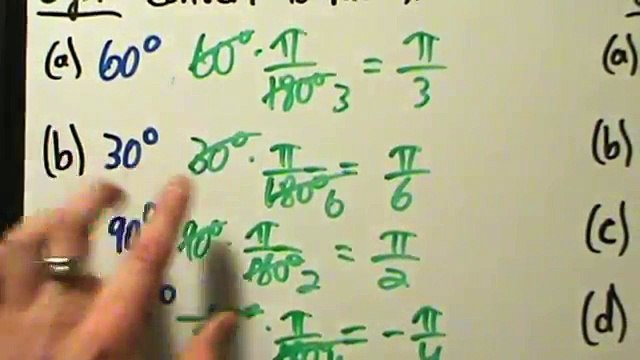 (a) 60° 60° · π/180° 3 = π/3 (a)
(b) 30° 30° · π/180° 6 = π/6 (b)
90° 90° · π/180° 2 = π/2 (c)
° · π = - π/4 (d)